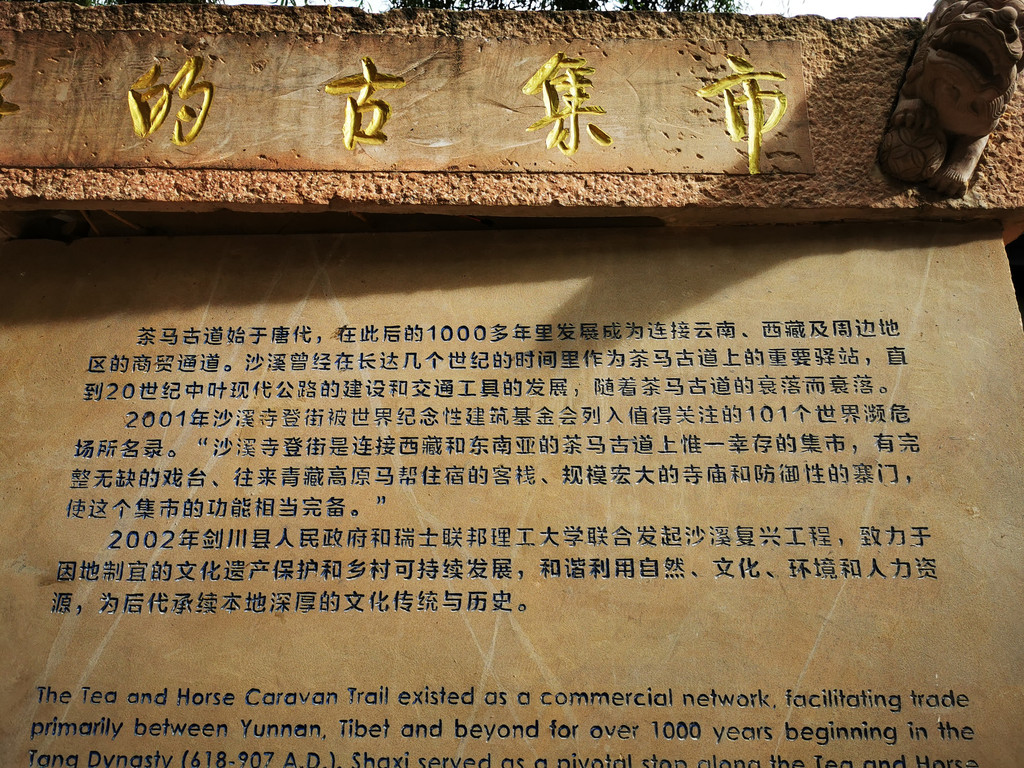 的古集市
茶马古道始于唐代，在此后的1000多年里发展成为连接云南、西藏及周边地
区的商贸通道。沙溪曾经在长达几个世纪的时间里作为茶马古道上的重要驿站，直
到20世纪中叶现代公路的建设和交通工具的发展，随着茶马古道的衰落而衰落。
2001年沙溪寺登街被世界纪念性建筑基金会列入值得关注的101个世界濒危
场所名录。“沙溪寺登街是连接西藏和东南亚的茶马古道上惟一幸存的集市，有完
整无缺的戏台、往来青藏高原马帮住宿的客栈、规模宏大的寺庙和防御性的寨门，
使这个集市的功能相当完备。”
2002年剑川县人民政府和瑞士联邦理工大学联合发起沙溪复兴工程，致力于
因地制宜的文化遗产保护和乡村可持续发展，和谐利用自然、文化、环境和人力资
源，为后代承续本地深厚的文化传统与历史。
The Tea and Horse Caravan Trail existed as a commercial network, facilitating trade
primarily between Yunnan, Tibet and beyond for over 1000 years beginning in the
Tang Dynasty (618-907 A.D.). Shaxi served as a pivotal stop along the Tea and Horse